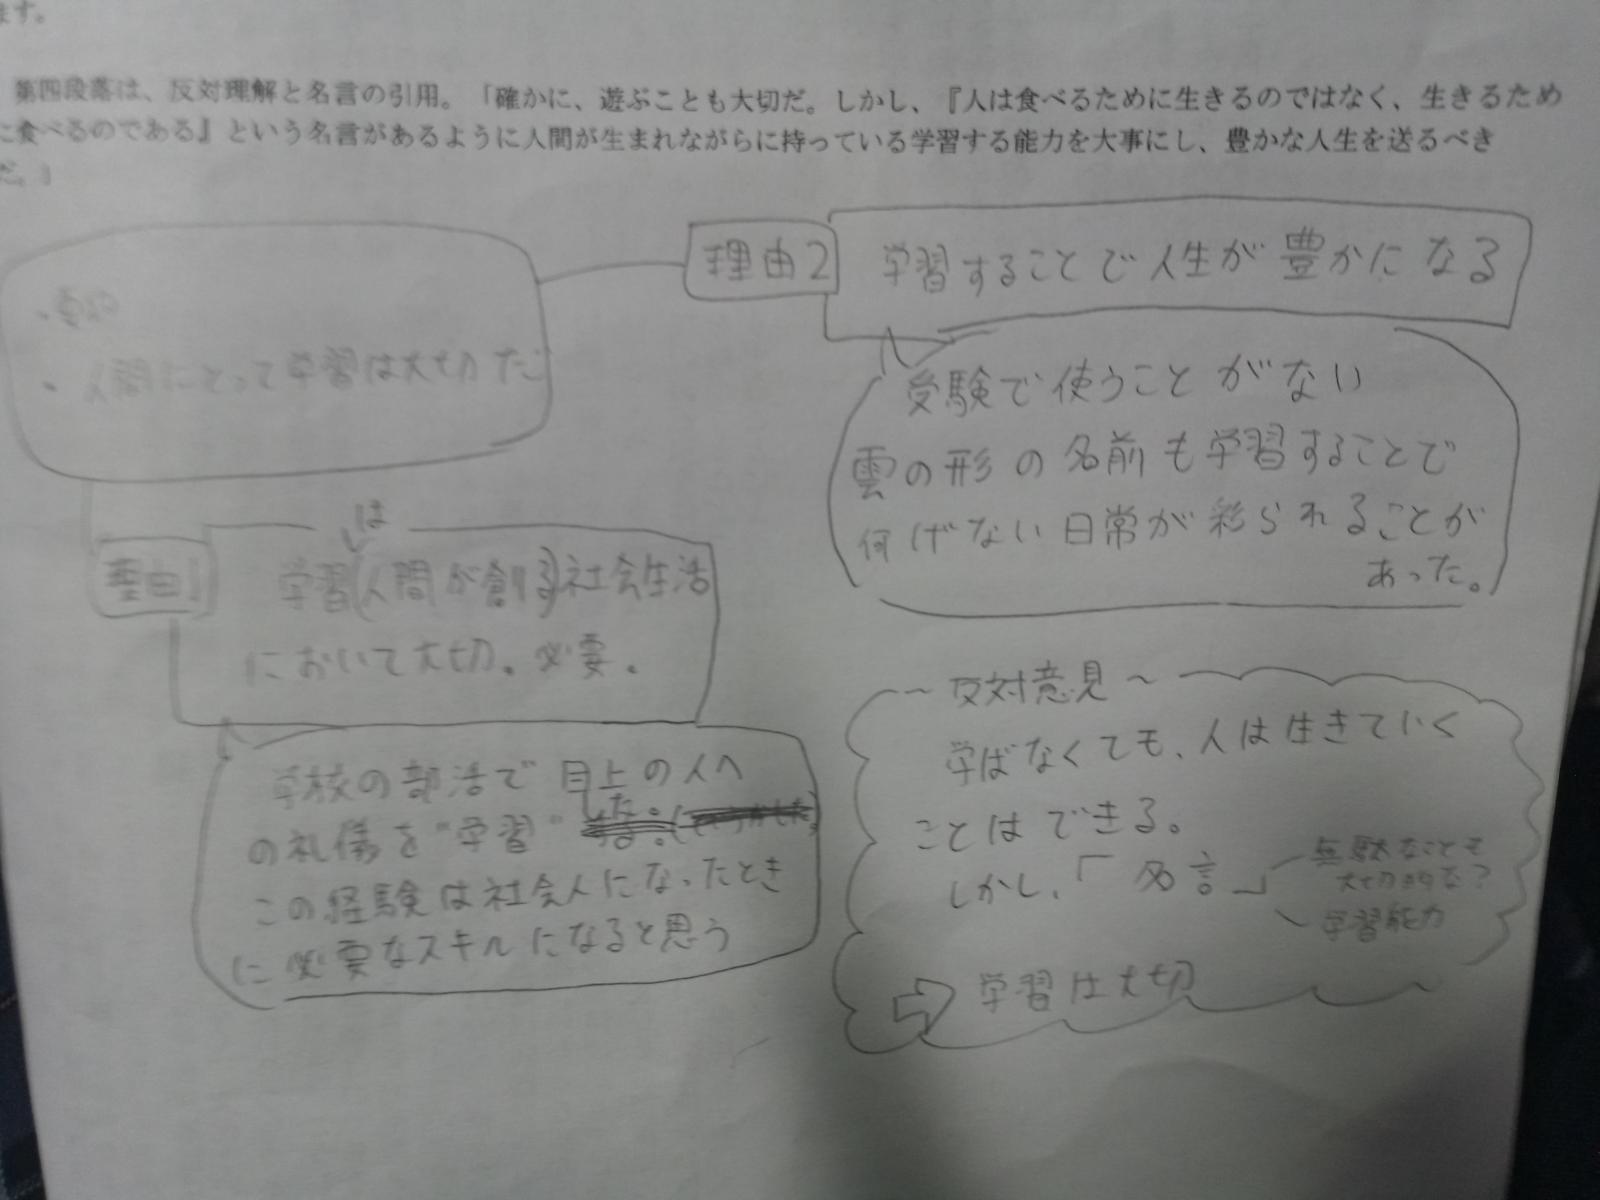 ます。
第四段落は、反対理解と名言の引用。「確かに、遊ぶことも大切だ。しかし、『人は食べるために生きるのではなく、生きるため
に食べるのである』という名言があるように人間が生まれながらに持っている学習する能力を大事にし、豊かな人生を送るべき
だ。」
・要約
・人間にとって学習は大切だ
理由1
は
学習(人間が創る)社会生活
において大切。必要。
学校の部活で目上の人へ
の礼儀を"学習"した。
この経験は社会人になったとき
に必要なスキルになると思う
理由2
学習することで人生が豊かになる
受験で使うことがない
雲の形の名前も学習することで
何げない日常が彩られることが
あった。
〜反対意見〜
学ばなくても、人は生きていく
ことはできる。
しかし、「名言」
無駄なことも
大切的な?
学習能力
⇨ 学習は大切